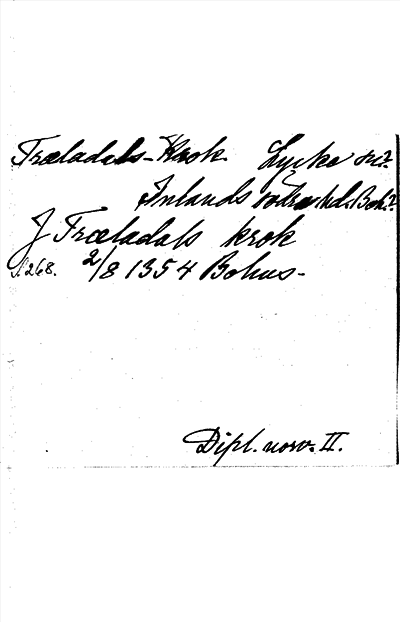 Træladals-Krok. Lycke sn?
Inlands södra hd. Boh.?
J Træladals krok
S. 268. 2/8 1354 Bohus-
Dipl. norv. II.